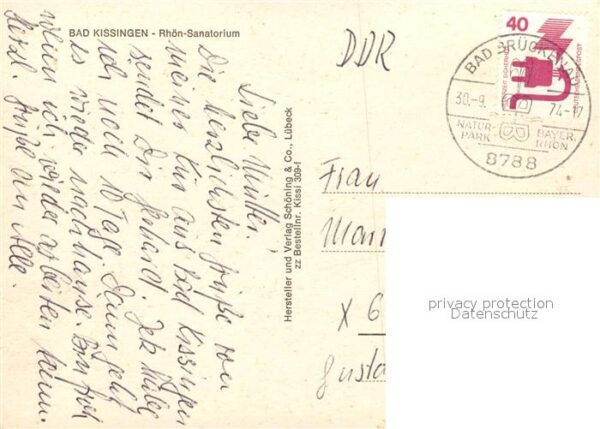 BAD KISSINGEN - Rhön-Sanatorium
Liebe Mutter.
Die herzlichsten Grüße von
meiner Kur aus Bad Kissingen
sendet Dir Gerhard.
noch 10 Tage. Dann geht
es wieder nachhause. Bin froh
wenn ich wieder arbeiten kann.
Herzl. Grüße an Alle.
Hersteller und Verlag Schöning & Co., Lübeck
zz Bestellnr. Kissi 309-f
DDR
40
DEUTSCHE BUNDESPOST
BAD BRÜCKENAU
30.-9. 74-17
NATUR- BAYER.
PARK RHÖN
8788
Frau
X 6
privacy protection
Datenschutz